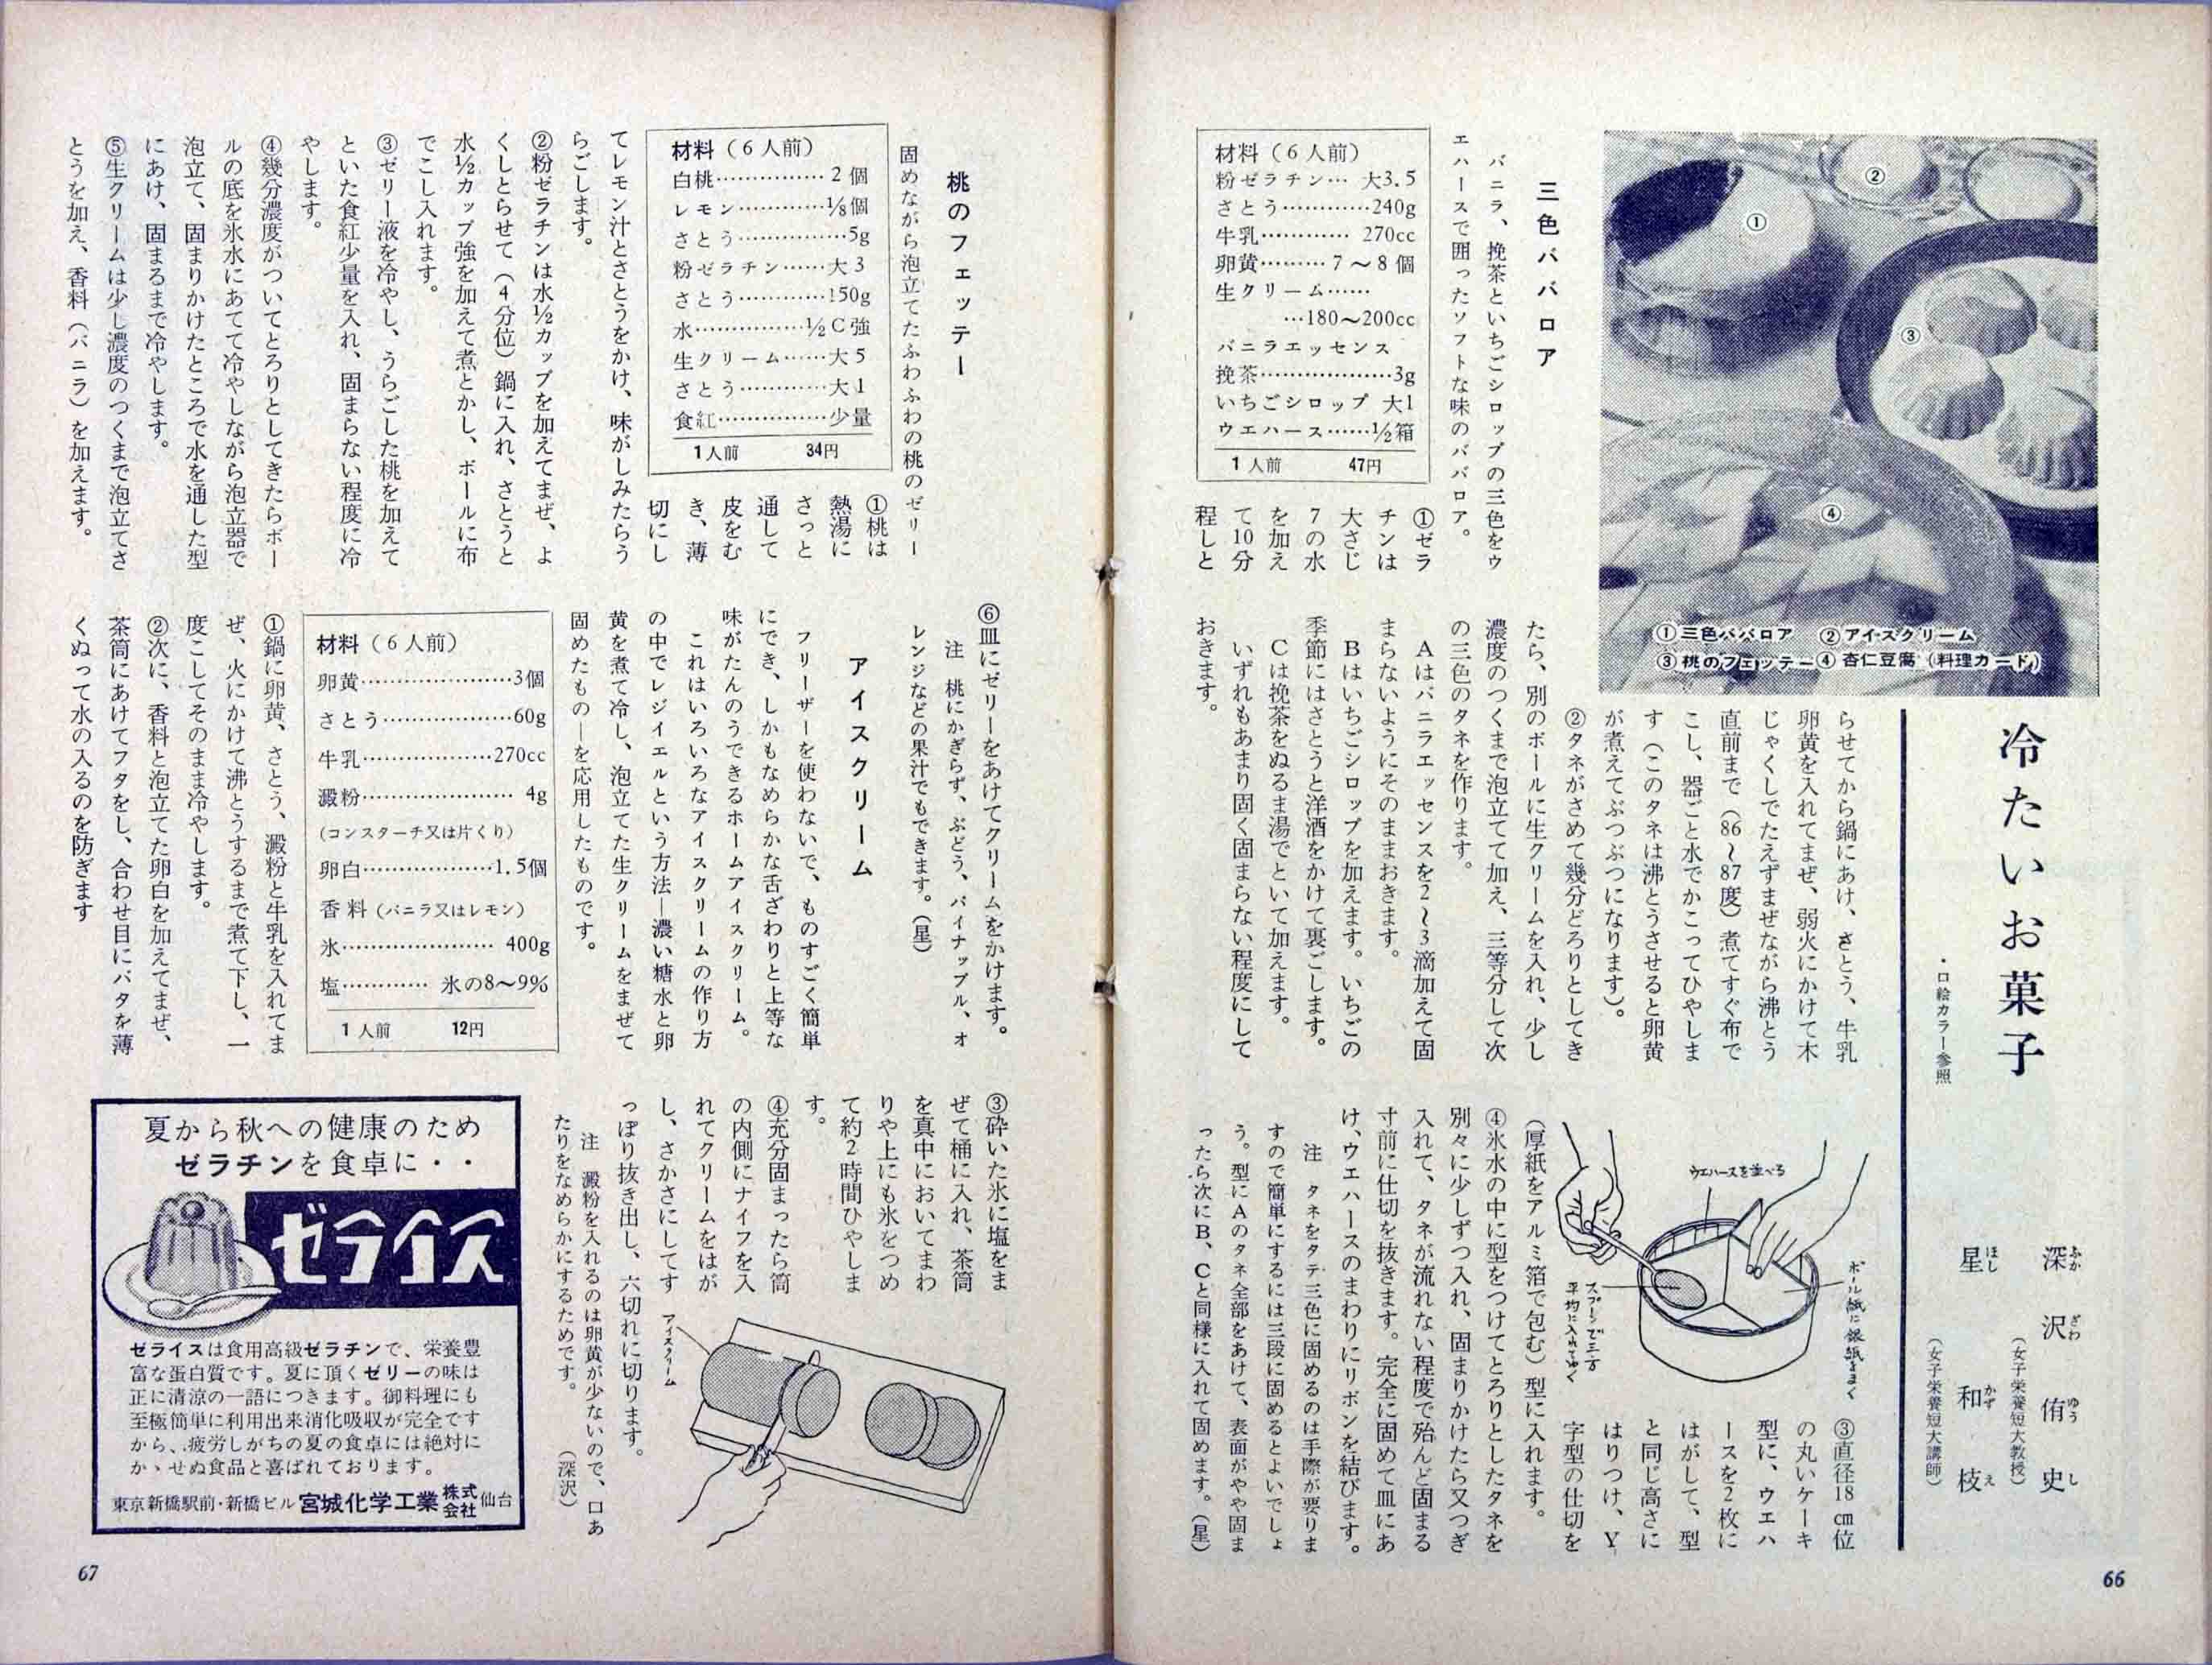 ①三色ババロア ②アイスクリーム
③桃のフェッテー④杏仁豆腐（料理カード）
冷たいお菓子
・口絵カラー参照
深沢侑史
ふかざわゆうし
（女子栄養短大教授）
星和枝
ほしかずえ
（女子栄養短大講師）
三色ババロア
バニラ、挽茶といちごシロップの三色をウ
エハースで囲ったソフトな味のババロア。
材料（6人前）
粉ゼラチン… 大3.5
さとう…………240g
牛乳………… 270cc
卵黄………7〜8個
生クリーム……
…180〜200cc
バニラエッセンス
挽茶………………3g
いちごシロップ 大1
ウエハース……½箱
1人前 47円
①ゼラ
チンは
大さじ
7の水
を加え
て10分
程しと
らせてから鍋にあけ、さとう、牛乳
卵黄を入れてまぜ、弱火にかけて木
じゃくしでたえずまぜながら沸とう
直前まで（86〜87度）煮てすぐ布で
こし、器ごと水でかこってひやしま
す（このタネは沸とうさせると卵黄
が煮えてぶつぶつになります）。
②タネがさめて幾分どろりとしてき
たら、別のボールに生クリームを入れ、少し
濃度のつくまで泡立てて加え、三等分して次
の三色のタネを作ります。
Aはバニラエッセンスを2〜3滴加えて固
まらないようにそのままおきます。
Bはいちごシロップを加えます。いちごの
季節にはさとうと洋酒をかけて裏ごします。
Cは挽茶をぬるま湯でといて加えます。
いずれもあまり固く固まらない程度にして
おきます。
ウエハースを並べる
ボール紙に銀紙をまく
スプーンで三方
平均に入れてゆく
③直径18cm位
の丸いケーキ
型に、ウエハ
ースを2枚に
はがして、型
と同じ高さに
はりつけ、Y
字型の仕切を
（厚紙をアルミ箔で包む）型に入れます。
④氷水の中に型をつけてとろりとしたタネを
別々に少しずつ入れ、固まりかけたら又つぎ
入れて、タネが流れない程度で殆んど固まる
寸前に仕切を抜きます。完全に固めて皿にあ
け、ウエハースのまわりにリボンを結びます。
注 タネをタテ三色に固めるのは手際が要りま
すので簡単にするには三段に固めるとよいでしょ
う。型にAのタネ全部をあけて、表面がやや固ま
ったら次にB、Cと同様に入れて固めます。（星）
66
桃のフェッテー
固めながら泡立てたふわふわの桃のゼリー
材料（6人前）
白桃…………… 2個
レモン…………⅛個
さとう……………5g
粉ゼラチン……大3
さとう…………150g
水……………½C強
生クリーム……大5
さとう…………大1
食紅……………少量
1人前 34円
①桃は
熱湯に
さっと
通して
皮をむ
き、薄
切にし
てレモン汁とさとうをかけ、味がしみたらう
らごします。
②粉ゼラチンは水½カップを加えてまぜ、よ
くしとらせて（4分位）鍋に入れ、さとうと
水½カップ強を加えて煮とかし、ボールに布
でこし入れます。
③ゼリー液を冷やし、うらごした桃を加えて
といた食紅少量を入れ、固まらない程度に冷
やします。
④幾分濃度がついてとろりとしてきたらボー
ルの底を氷水にあてて冷やしながら泡立器で
泡立て、固まりかけたところで水を通した型
にあけ、固まるまで冷やします。
⑤生クリームは少し濃度のつくまで泡立てさ
とうを加え、香料（バニラ）を加えます。
⑥皿にゼリーをあけてクリームをかけます。
注 桃にかぎらず、ぶどう、パイナップル、オ
レンジなどの果汁でもできます。（星）
アイスクリーム
フリーザーを使わないで、ものすごく簡単
にでき、しかもなめらかな舌ざわりと上等な
味がたんのうできるホームアイスクリーム。
これはいろいろなアイスクリームの作り方
の中でレジイエルという方法―濃い糖水と卵
黄を煮て冷し、泡立てた生クリームをまぜて
固めたもの―を応用したものです。
材料（6人前）
卵黄…………………3個
さとう………………60g
牛乳………………270cc
澱粉………………… 4g
（コンスターチ又は片くり）
卵白………………1.5個
香料（バニラ又はレモン）
氷………………… 400g
塩………… 氷の8〜9％
1人前 12円
①鍋に卵黄、さとう、澱粉と牛乳を入れてま
ぜ、火にかけて沸とうするまで煮て下し、一
度こしてそのまま冷やします。
②次に、香料と泡立てた卵白を加えてまぜ、
茶筒にあけてフタをし、合わせ目にバタを薄
くぬって水の入るのを防ぎます
③砕いた氷に塩をま
ぜて桶に入れ、茶筒
を真中においてまわ
りや上にも氷をつめ
て約2時間ひやしま
す。
④充分固まったら筒
の内側にナイフを入
れてクリームをはが
し、さかさにしてす
っぽり抜き出し、六切れに切ります。
注 澱粉を入れるのは卵黄が少ないので、口あ
たりをなめらかにするためです。 （深沢）
アイスクリーム
夏から秋への健康のため
ゼラチンを食卓に・・
ゼライス
ゼライスは食用高級ゼラチンで、栄養豊
富な蛋白質です。夏に頂くゼリーの味は
正に清涼の一語につきます。御料理にも
至極簡単に利用出来消化吸収が完全です
から、疲労しがちの夏の食卓には絶対に
かゝせぬ食品と喜ばれております。
東京新橋駅前・新橋ビル 宮城化学工業株式会社 仙台
67